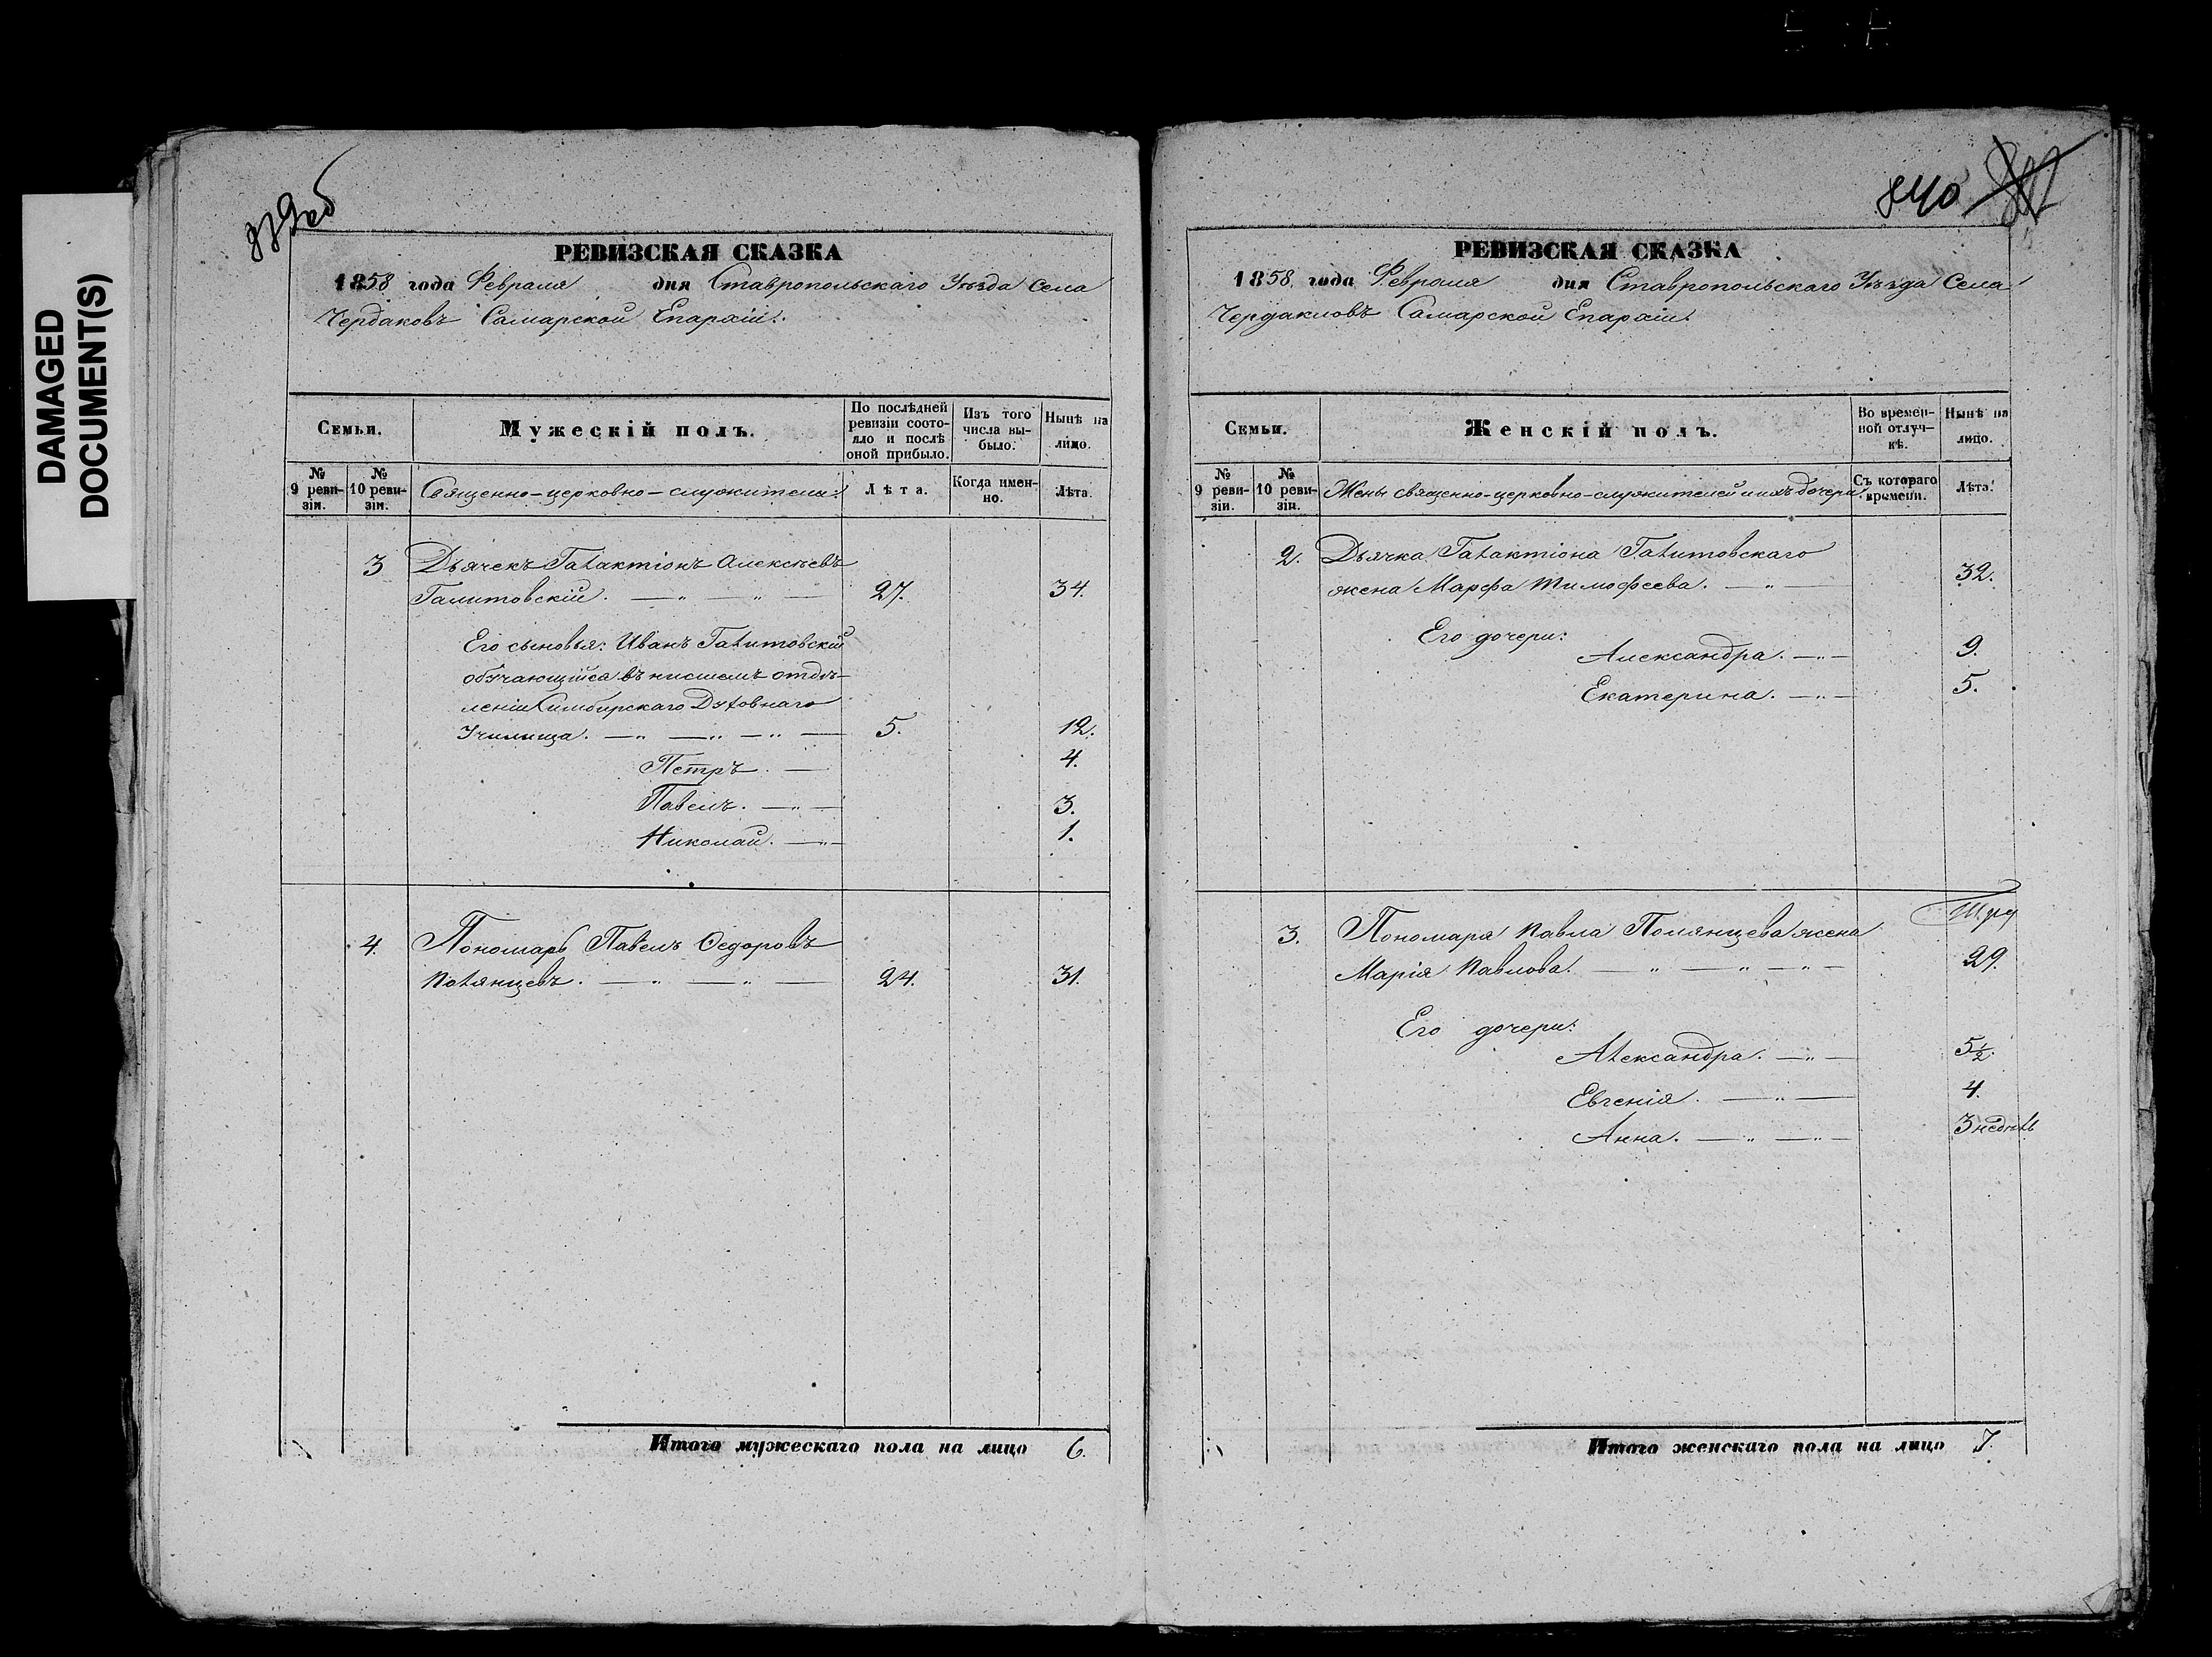 DAMAGED
DOCUMENT(S)
839об
РЕВИЗСКАЯ СКАЗКА
1858 года Февраля дня Ставропольскаго Уѣзда Села
Чердаковъ Самарской Епархіи.
Семьи.
Мужескій полъ.
По послѣдней ревизіи состояло и послѣ оной прибыло.
Изъ того числа выбыло.
Нынѣ на лицо.
№ 9 ревизіи.
№ 10 ревизіи.
Священно-церковно-служители:
Лѣта.
Когда именно.
Лѣта.
3 Дьячекъ Галактіонъ Алексѣевъ
Галитовскій. — „ — „ — 27. 34.
Его сыновья: Иванъ Галитовскій
обучающійся въ нисшемъ отдѣ-
леніи Симбирскаго Духовнаго
Училища. — „ — „ — „ — 5. 12.
Петръ. — 4.
Павелъ. — „ — 3.
Николай. — „ — 1.
4. Пономарь Павелъ Ѳедоровъ
Полянцевъ. — „ — „ — 24. 31.
Итого мужескаго пола на лицо 6.
840
РЕВИЗСКАЯ СКАЗКА
1858 года Февраля дня Ставропольскаго Уѣзда Села
Чердаковъ Самарской Епархіи.
Семьи.
Женскій полъ.
Во временной отлучкѣ.
Нынѣ на лицо.
№ 9 ревизіи.
№ 10 ревизіи.
Жены священно-церковно-служителей и ихъ дочери
Съ котораго времени.
Лѣта.
2. Дьячка Галактіона Галитовскаго
жена Марфа Тимофеева. — „ — 32.
Его дочери:
Александра. — „ — 9.
Екатерина. — „ — 5.
3. Пономаря Павла Полянцева жена
Марія Павлова. — „ — „ — „ — 29.
Его дочери:
Александра. — „ — 5½.
Евгенія. — „ — 4.
Анна. — „ — „ — 3 недѣль
Итого женскаго пола на лицо 7.